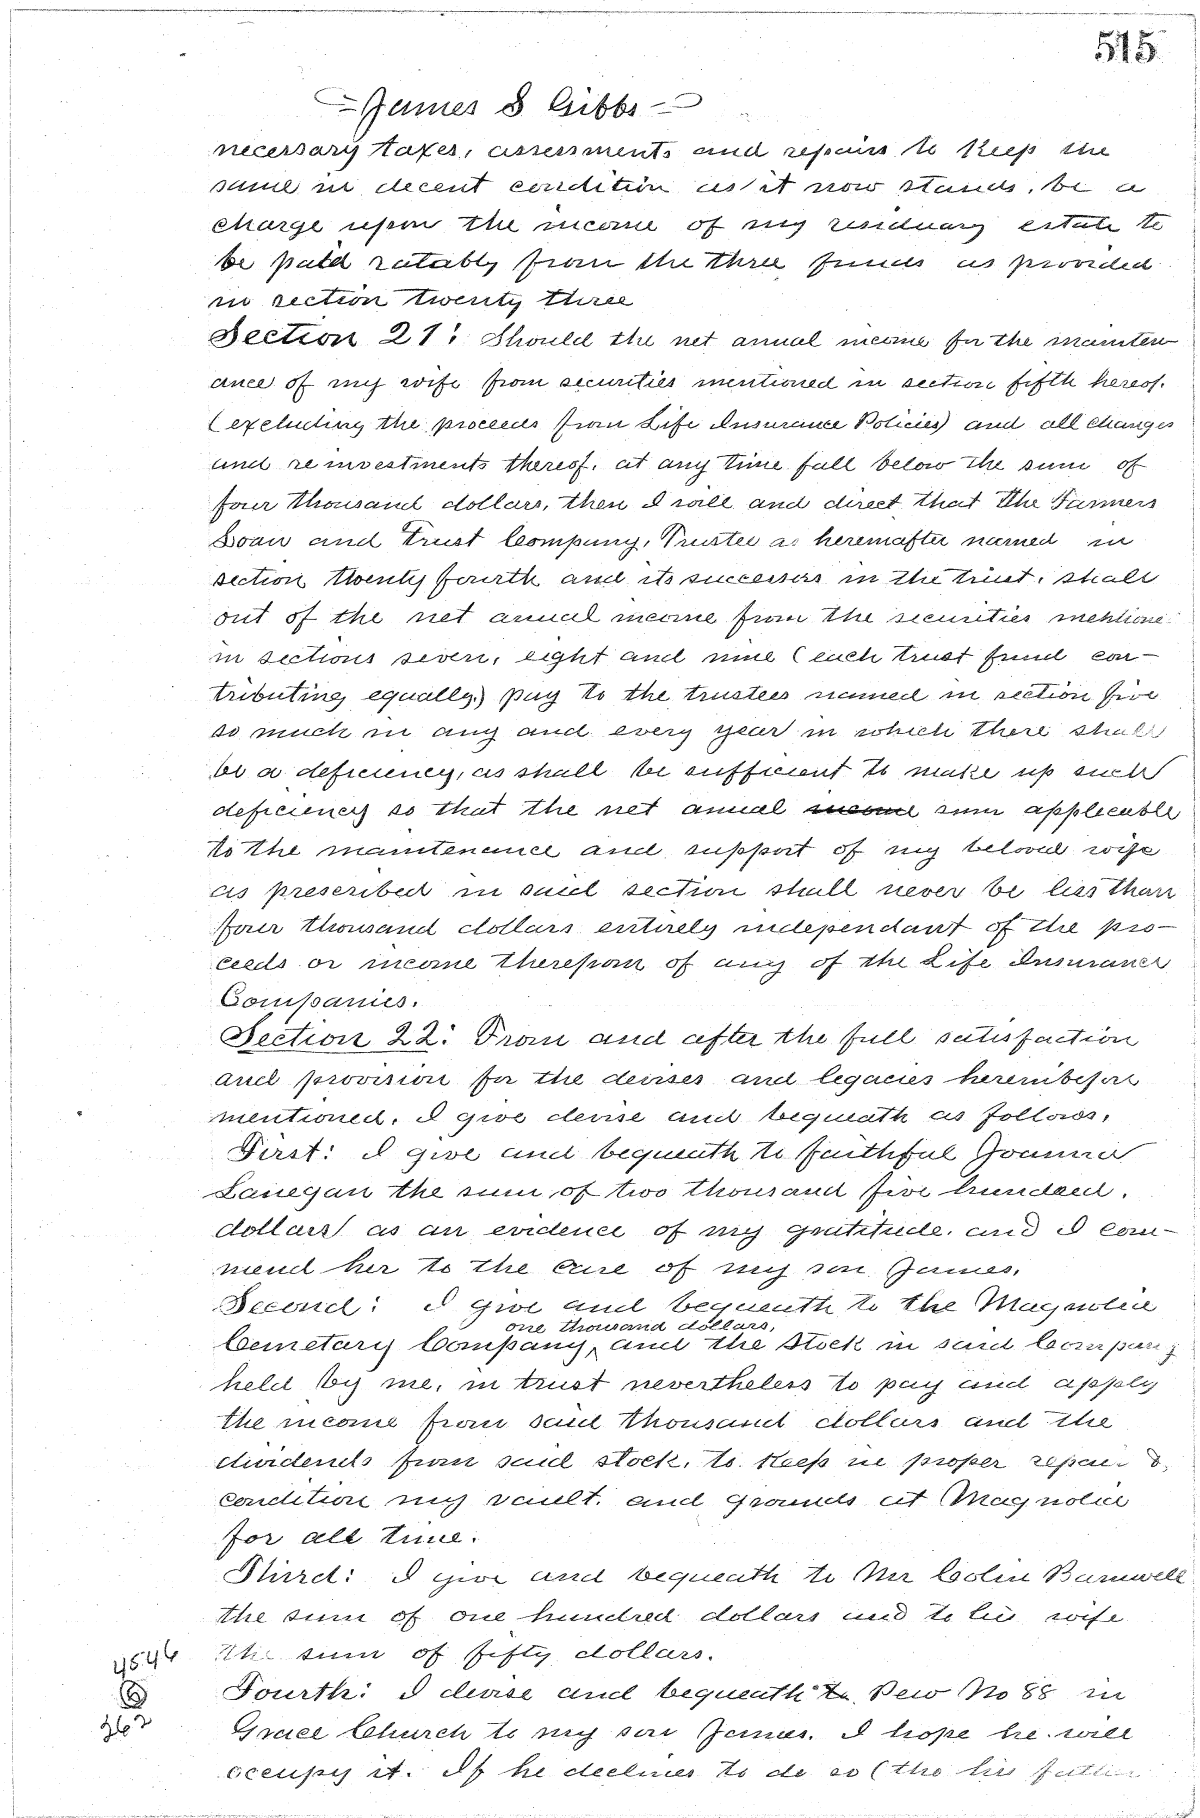 515
James S Gibbs
necessary taxes, assessments and repairs to keep the
same in decent condition as it now stands, be a
charge upon the income of my residuary estate to
be paid ratably from the three funds as provided
in section twenty three
Section 21: Should the net anual income for the mainten-
ance of my wife from securities mentioned in section fifth hereof.
(excluding the proceeds from Life Insurance Policies) and all changes
and reinvestments thereof, at any time fall below the sum of
four thousand dollars, then I will and direct that the Farmers
Loan and Trust Company, Trustee as hereinafter named in
section twenty fourth and its successors in the trust, shall
out of the net anual income from the securities mentione
in sections seven, eight and nine (each trust fund con-
tributing equally) pay to the trustees named in section five
so much in any and every year in which there shall
be a deficiency, as shall be sufficient to make up such
deficiency so that the net anual income sum applicable
to the maintenance and support of my beloved wife
as prescribed in said section shall never be less than
four thousand dollars entirely independant of the pro-
ceeds or income therefrom of any of the Life Insurance
Companies.
Section 22: From and after the full satisfaction
and provision for the devises and legacies hereinbefore
mentioned, I give devise and bequeath as follows,
First: I give and bequeath to faithful Joanna
Lanegan the sum of two thousand five hundred.
dollars as an evidence of my gratitude, and I com-
mend her to the care of my son James.
Second: I give and bequeath to the Magnolia
one thousand dollars,
Cemetary Company, and the stock in said Company
held by me, in trust nevertheless to pay and apply
the income from said thousand dollars and the
dividends from said stock, to keep in proper repair &
condition my vault, and grounds at Magnolia
for all time.
Third: I give and bequeath to Mr Colin Barnwell
the sum of one hundred dollars and to his wife
the sum of fifty dollars.
4546
6
362
Fourth: I devise and bequeath to Pew No 88 in
Grace Church to my son James. I hope he will
occupy it. If he declines to do so (tho his father